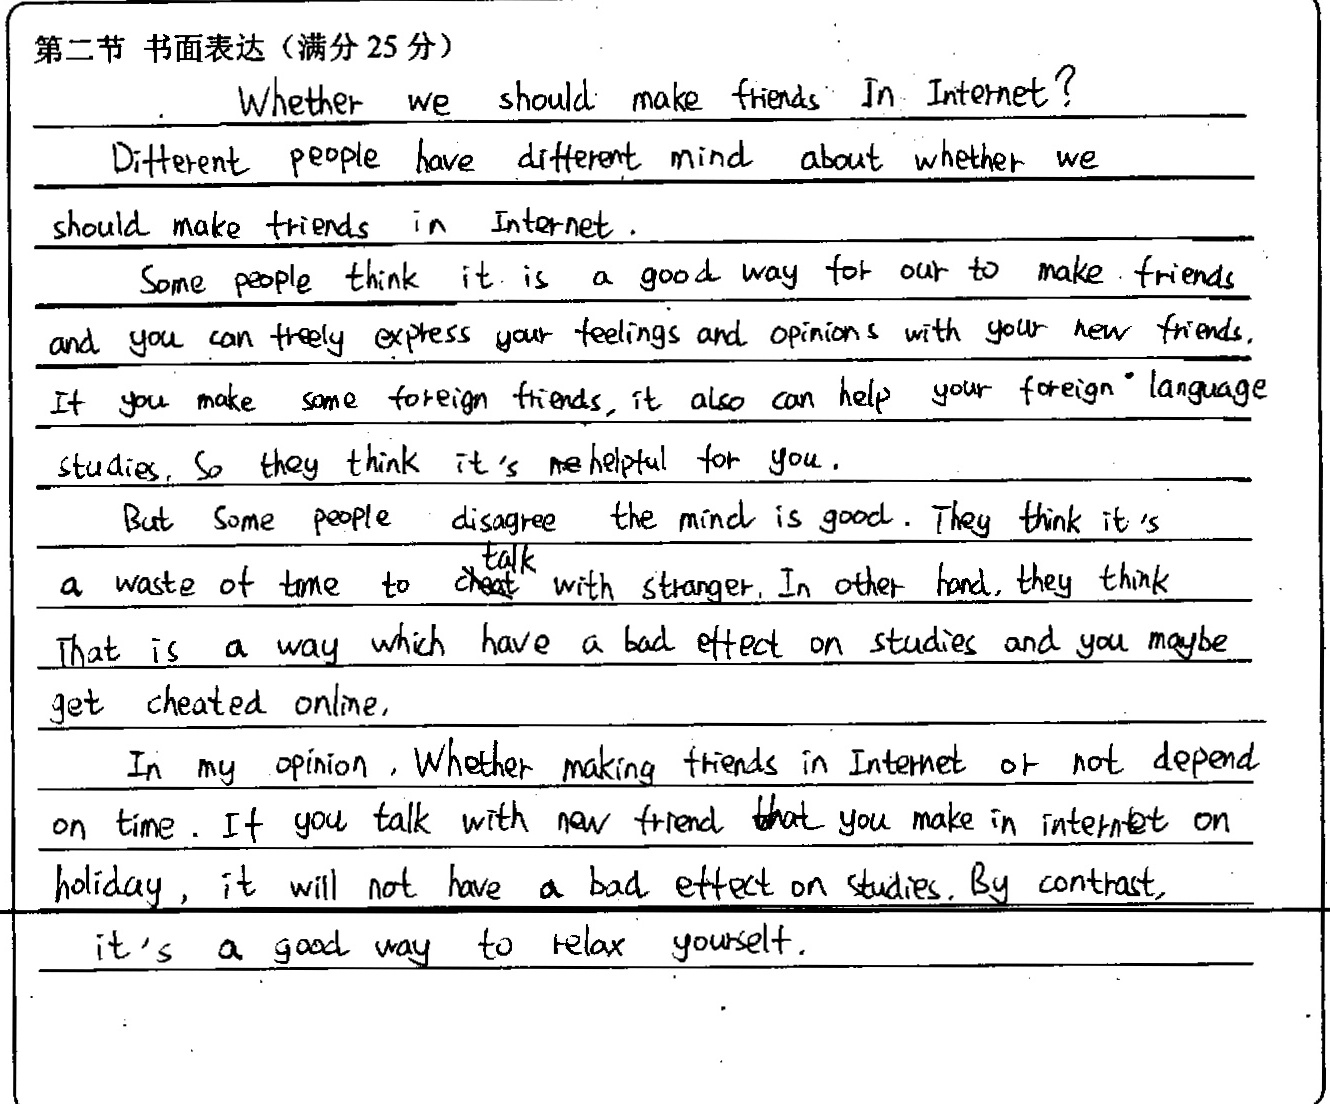 第二节 书面表达（满分 25 分）
Whether we should make friends In Internet?
Different people have different mind about whether we
should make friends in Internet.
Some people think it is a good way for our to make friends
and you can freely express your feelings and opinions with your new friends.
If you make some foreign friends, it also can help your foreign language
studies. So they think it's helpful for you.
But Some people disagree the mind is good. They think it's
a waste of time to talk with stranger. In other hand, they think
That is a way which have a bad effect on studies and you maybe
get cheated online.
In my opinion, Whether making friends in Internet or not depend
on time. If you talk with new friend that you make in internet on
holiday, it will not have a bad effect on studies. By contrast,
it's a good way to relax yourself.